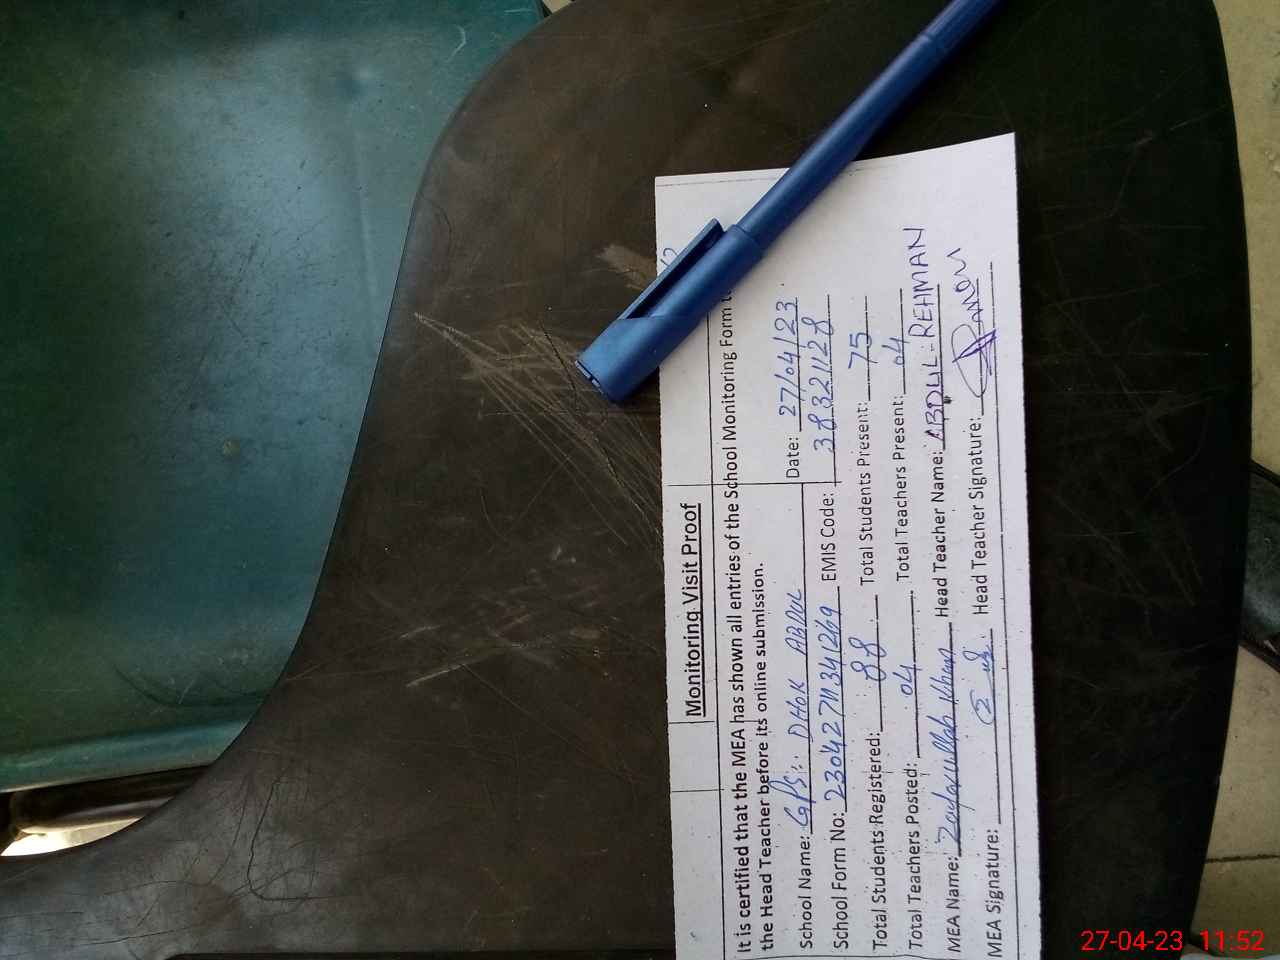 Monitoring Visit Proof
It is certified that the MEA has shown all entries of the School Monitoring Form
the Head Teacher before its online submission.
School Name: GPS:. DHOK ABDUL Date: 27/04/23
School Form No: EMIS Code: 38321128
Total Students Registered: 88 Total Students Present: 75
Total Teachers Posted: 04 Total Teachers Present: 04
MEA Name: Khan Head Teacher Name: ABDUL-REHMAN
MEA Signature: Head Teacher Signature:
27-04-23 11:52